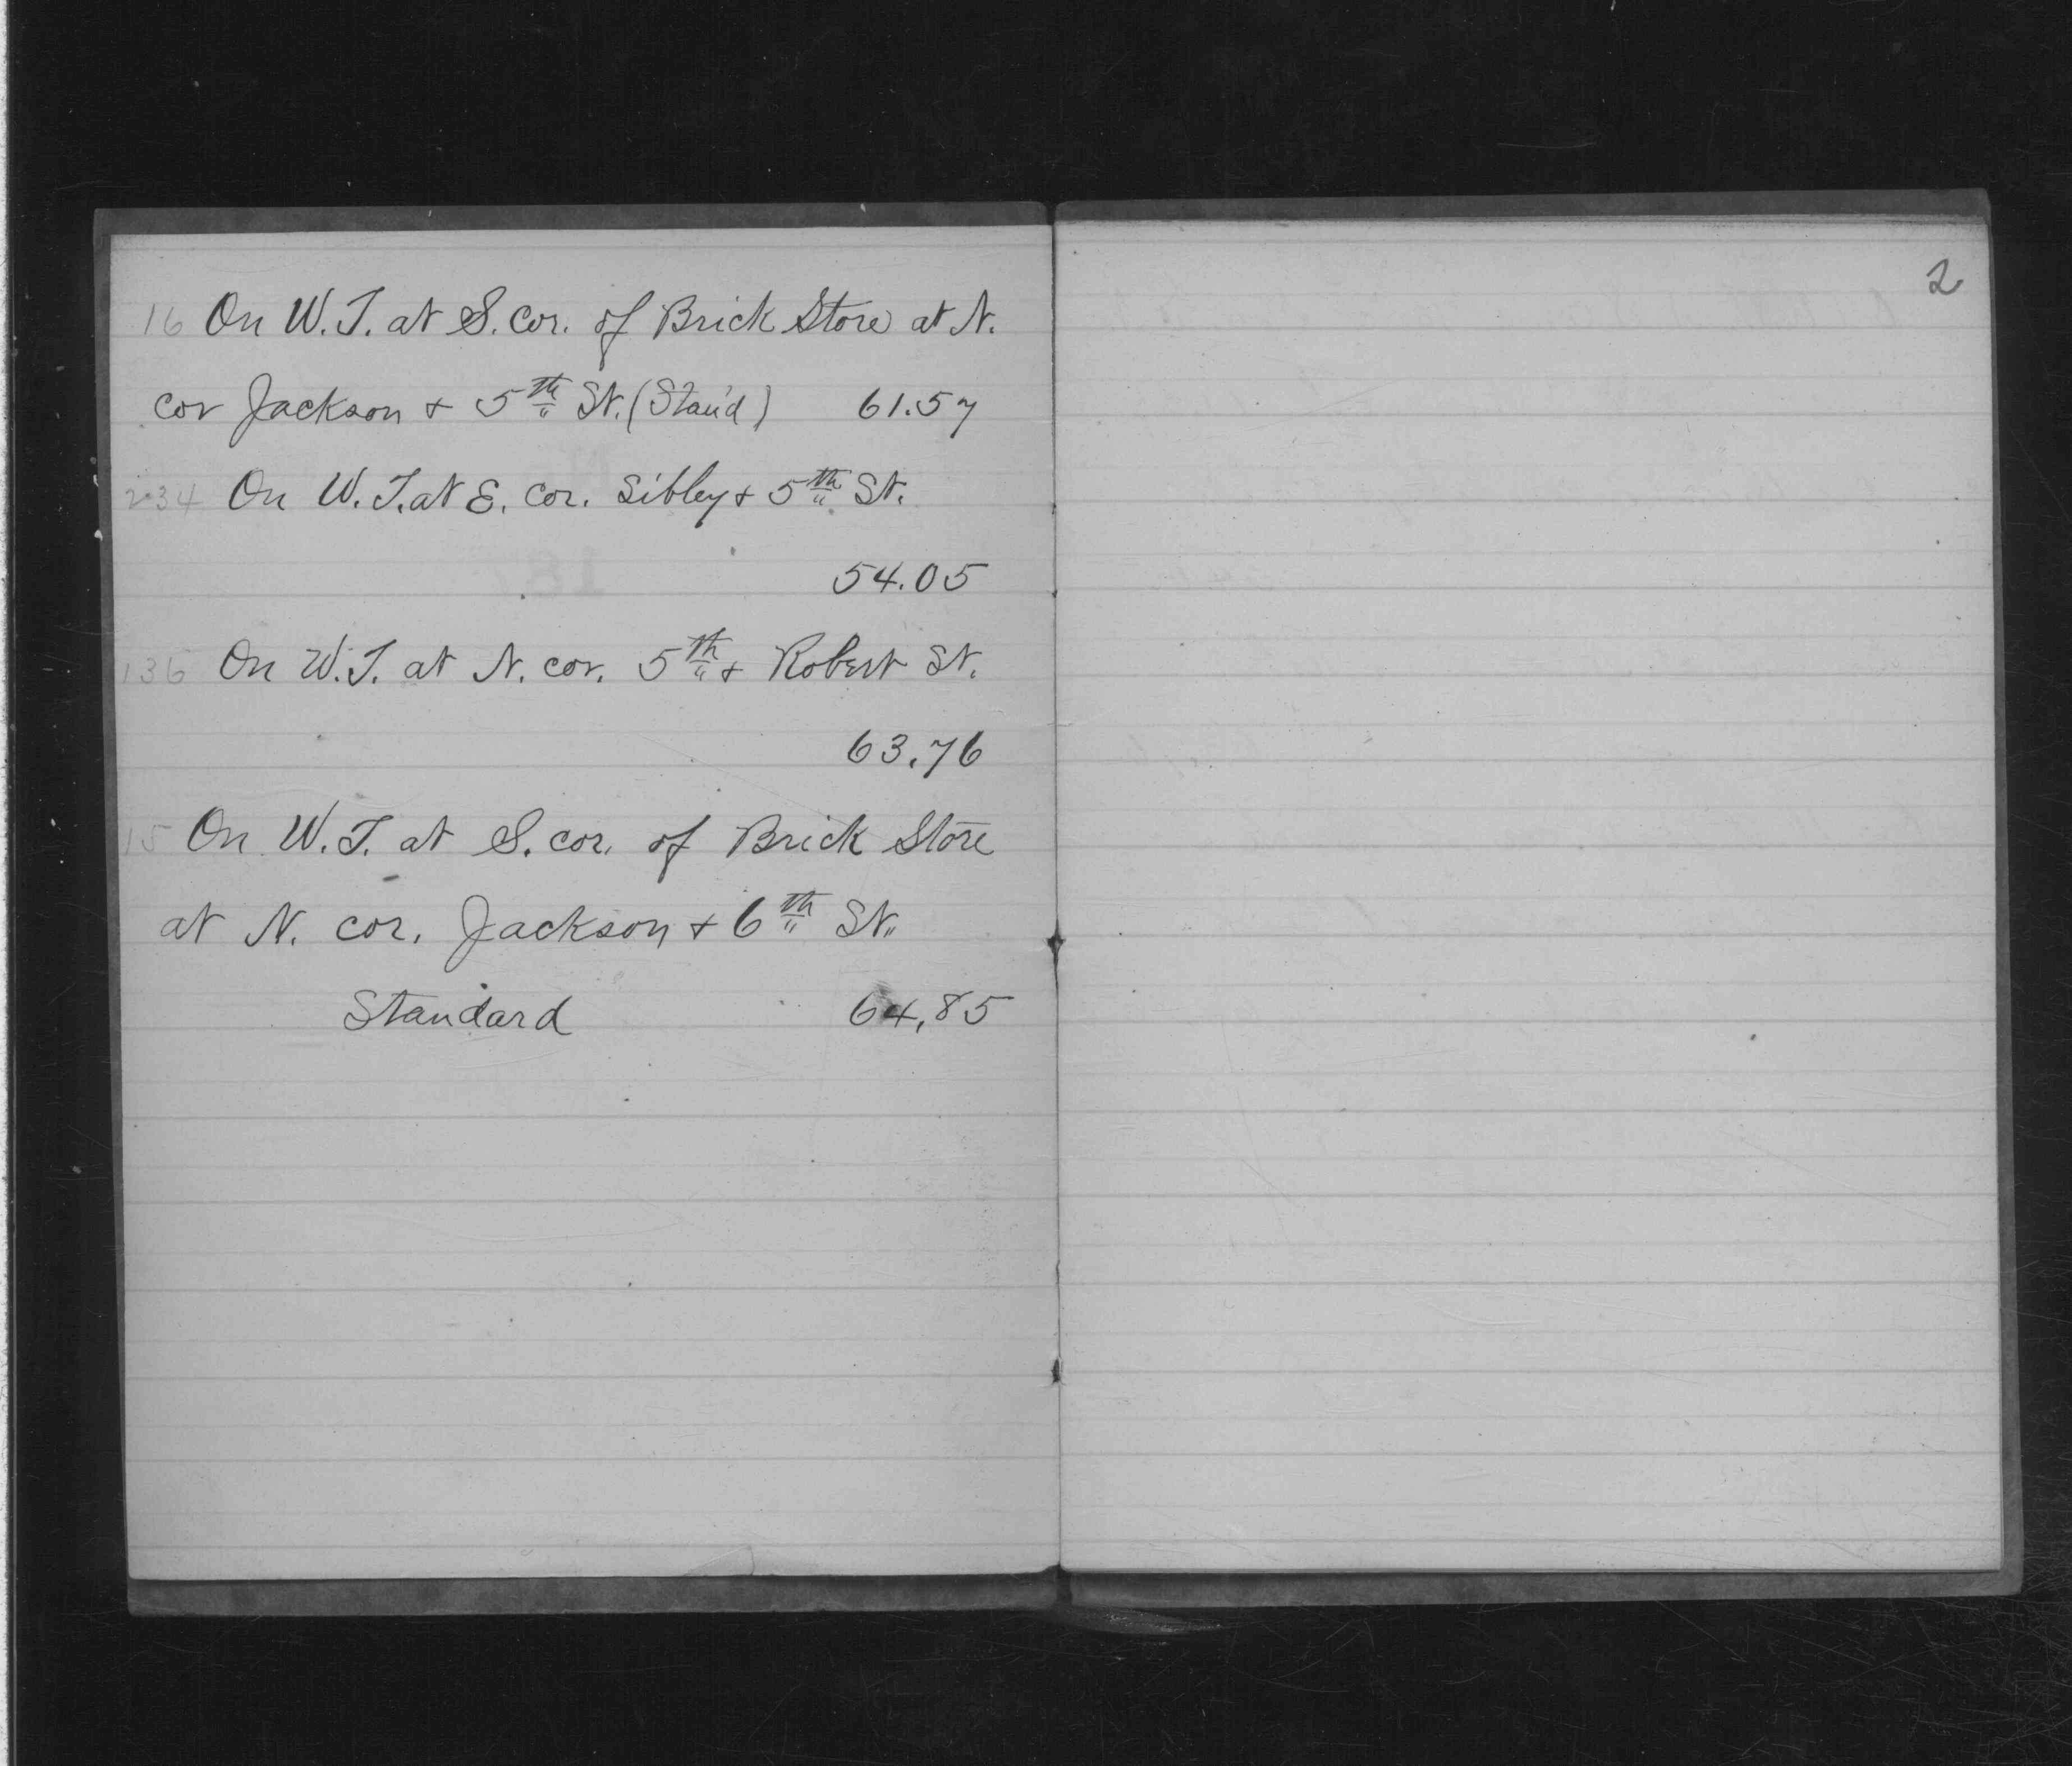 16 On W.T. at S. cor. of Brick Store at N.
cor Jackson + 5th St. (Stan'd) 61.57
234 On W.T. at E. cor. Sibley + 5th St.
54.05
136 On W.T. at N. cor. 5th + Robert St.
63.76
15 On W.T. at S. cor. of Brick Store
at N. cor. Jackson + 6th St.
Standard 64.85
2